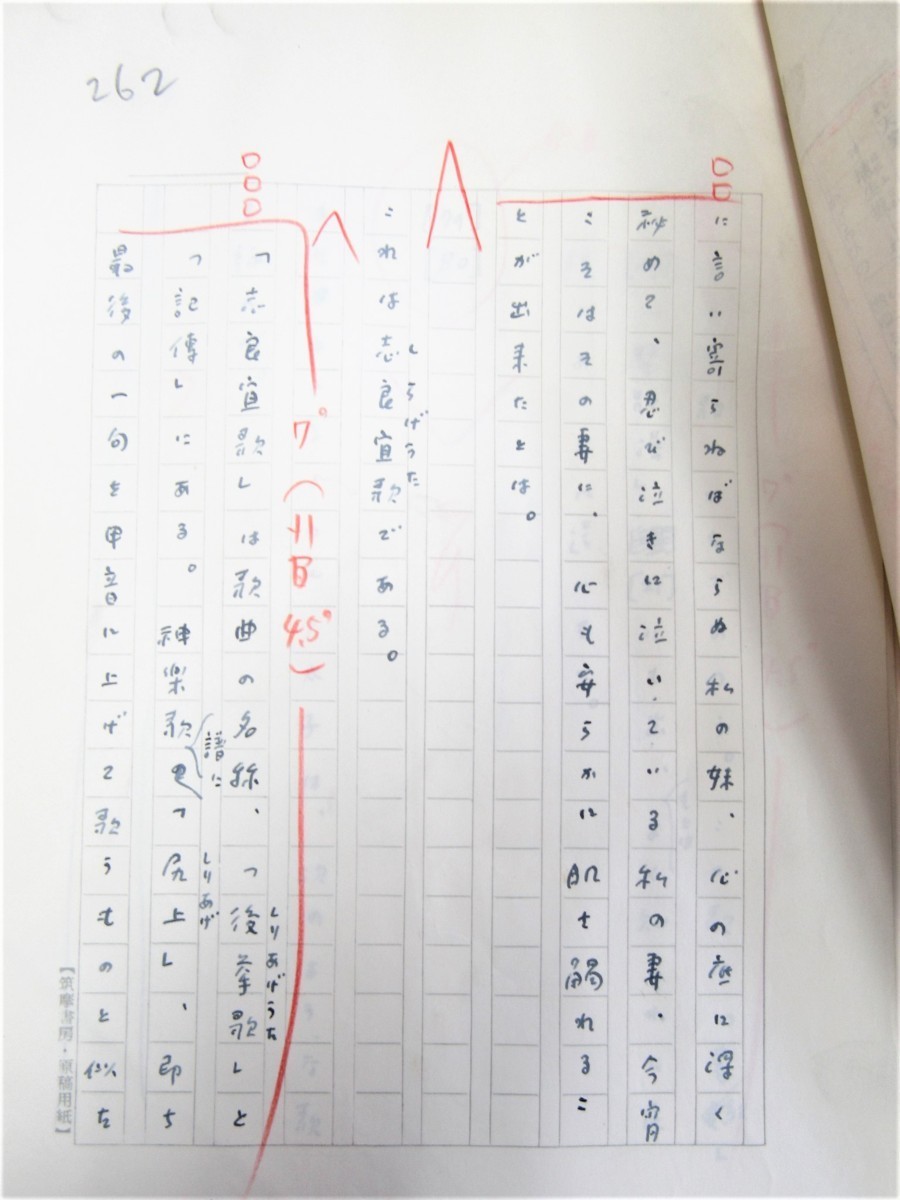 262
に言い寄らねばならぬ私の妹、心の底に深く
秘めて、忍び泣きに泣いている私の妻、今宵
こそはその妻に、心も安らかに肌を觸れるこ
とが出来たとは。
しらげうた
これは志良宜歌である。
7°
しりあげうた
「志良宜歌」は歌曲の名称、「後挙歌」と
譜に しりあげ
「記傳」にある。神楽歌の「尻上」、即ち
最後の一句を甲音に上げて歌うものと似た
【筑摩書房・原稿用紙】